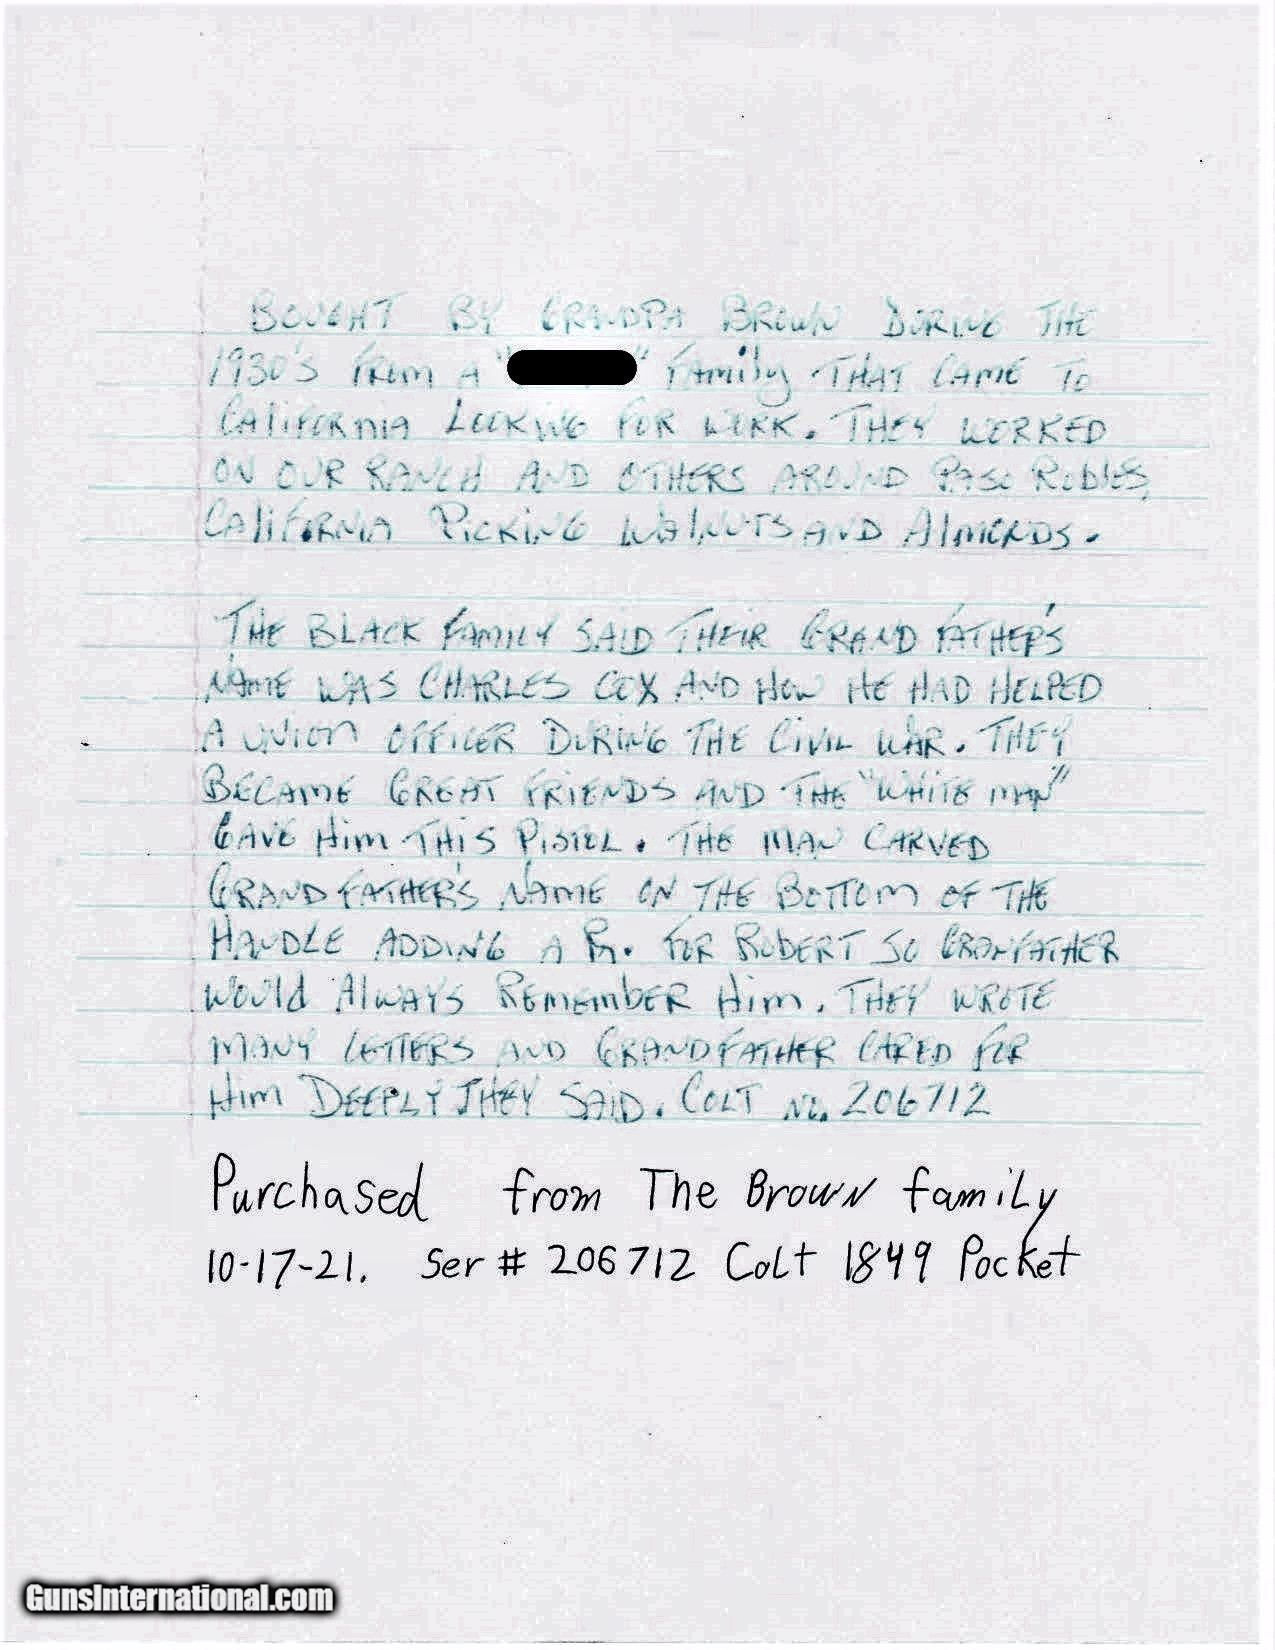 BOUGHT BY GRANDPA BROWN DURING THE
1930'S FROM A "        " FAMILY THAT CAME TO
CALIFORNIA LOOKING FOR WORK. THEY WORKED
ON OUR RANCH AND OTHERS AROUND PASO ROBLES,
CALIFORNIA PICKING WALNUTS AND ALMONDS.
THE BLACK FAMILY SAID THEIR GRAND FATHER'S
NAME WAS CHARLES COX AND HOW HE HAD HELPED
A UNION OFFICER DURING THE CIVIL WAR. THEY
BECAME GREAT FRIENDS AND THE "WHITE MAN"
GAVE HIM THIS PISTOL. THE MAN CARVED
GRAND FATHER'S NAME ON THE BOTTOM OF THE
HANDLE ADDING A R. FOR ROBERT SO GRANFATHER
WOULD ALWAYS REMEMBER HIM. THEY WROTE
MANY LETTERS AND GRANDFATHER CARED FOR
HIM DEEPLY THEY SAID. COLT NO. 206712
Purchased from The Brown family
10-17-21. Ser # 206712 Colt 1849 Pocket
GunsInternational.com